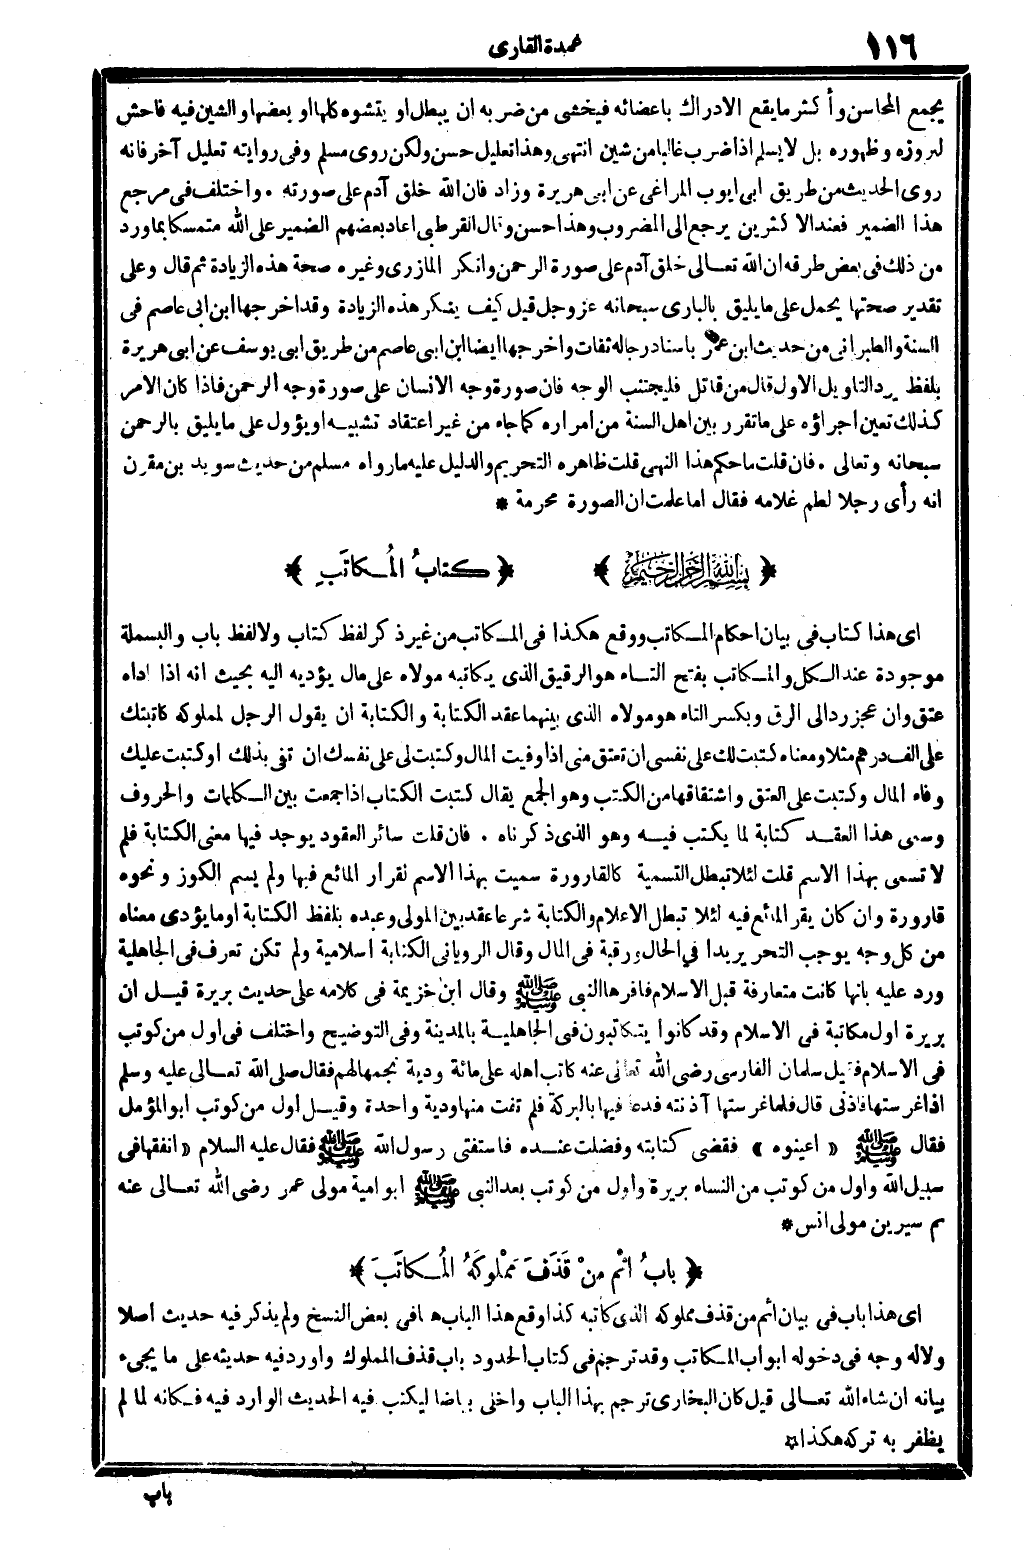 ١١٦
عمدة القارى
يجمع المحاسن وأكثر مايقع الادراك باعضائه فيخشى من ضربه ان يبطل او يتشوه كلها او بعضها والشين فيه فاحش
لبروزه وظهوره بل لايسلم اذا ضرب غالبا من شين انتهى وهذا تعليل حسن ولكن روى مسلم وفى روايته تعليل آخر فانه
روى الحديث من طريق ابى ايوب المراغى عن ابى هريرة وزاد فان الله خلق آدم على صورته . واختلف فى مرجع
هذا الضمير فعند الاكثرين يرجع الى المضروب وهذا حسن وقال القرطبى اعاد بعضهم الضمير على الله متمسكا بماورد
من ذلك فى بعض طرقه ان الله تعالى خلق آدم على صورة الرحمن وانكر المازرى وغيره صحة هذه الزيادة ثم قال وعلى
تقدير صحتها يحمل على مايليق بالبارى سبحانه عز وجل قيل كيف ينكر هذه الزيادة وقد اخرجها ابن ابى عاصم فى
السنة والطبرانى من حديث ابن عمر باسناد رجاله ثقات واخرجها ايضا ابن ابى عاصم من طريق ابى يوسف عن ابى هريرة
بلفظ يرد التاويل الاول قال من قاتل فليجتنب الوجه فان صورة وجه الانسان على صورة وجه الرحمن فاذا كان الامر
كذلك تعين اجراؤه على ماتقرر بين اهل السنة من امراره كماجاء من غير اعتقاد تشبيه او يؤول على مايليق بالرحمن
سبحانه وتعالى . فان قلت ماحكم هذا النهى قلت ظاهره التحريم والدليل عليه مارواه مسلم من حديث سويد بن مقرن
انه رأى رجلا لطم غلامه فقال اما علمت ان الصورة محرمة *
﴿ بسم الله الرحمن الرحيم ﴾ ﴿ كتابُ المُكاتَبِ ﴾
اى هذا كتاب فى بيان احكام المكاتب ووقع هكذا فى المكاتب من غير ذكر لفظ كتاب ولا لفظ باب والبسملة
موجودة عند الكل والمكاتب بفتح التاء هو الرقيق الذى يكاتبه مولاه على مال يؤديه اليه بحيث انه اذا اداه
عتق وان عجز رد الى الرق وبكسر التاء هو مولاه الذى بينهما عقد الكتابة والكتابة ان يقول الرجل لمملوكه كاتبتك
على الف درهم مثلا ومعناه كتبت لك على نفسى ان تعتق منى اذا وفيت المال وكتبت لى على نفسك ان تفى بذلك او كتبت عليك
وفاء المال وكتبت على العتق واشتقاقها من الكتب وهو الجمع يقال كتبت الكتاب اذا جمعت بين الكلمات والحروف
وسمى هذا العقد كتابة لما يكتب فيه وهو الذى ذكرناه . فان قلت سائر العقود يوجد فيها معنى الكتابة فلم
لا تسمى بهذا الاسم قلت لئلا تبطل التسمية كالقارورة سميت بهذا الاسم لقرار المائع فيها ولم يسم الكوز ونحوه
قارورة وان كان يقر المائع فيه لئلا تبطل الاعلام والكتابة شرعا عقد بين المولى وعبده بلفظ الكتابة او مايؤدى معناه
من كل وجه يوجب التحرير يدا في الحال ورقبة فى المال وقال الرويانى الكتابة اسلامية ولم تكن تعرف فى الجاهلية
ورد عليه بانها كانت متعارفة قبل الاسلام فاقرها النبى ﷺ وقال ابن خزيمة فى كلامه على حديث بريرة قيل ان
بريرة اول مكاتبة فى الاسلام وقد كانوا يتكاتبون فى الجاهلية بالمدينة وفى التوضيح واختلف فى اول من كوتب
فى الاسلام فقيل سلمان الفارسى رضى الله تعالى عنه كاتب اهله على مائة ودية نجمها لهم فقال صلى الله تعالى عليه وسلم
اذا غرستها فاذنى قال فلما غرستها آذنته فدعا فيها بالبركة فلم تفت منها ودية واحدة وقيل اول من كوتب ابو المؤمل
فقال ﷺ « اعينوه » فقضى كتابته وفضلت عنده فاستفتى رسول الله ﷺ فقال عليه السلام « انفقها فى
سبيل الله واول من كوتب من النساء بريرة واول من كوتب بعد النبى ﷺ ابو امية مولى عمر رضى الله تعالى عنه
ثم سيرين مولى انس *
﴿ بابُ اثْم مِنْ قَذَفَ مَمْلُوكَهُ المُكاتَبَ ﴾
اى هذا باب فى بيان أثم من قذف مملوكه الذى كاتبه كذا وقع هذا الباب هافى بعض النسخ ولم يذكر فيه حديث اصلا
ولا له وجه فى دخوله ابواب المكاتب وقد ترجم فى كتاب الحدود باب قذف المملوك واورد فيه حديثه على ما يجىء
بيانه ان شاء الله تعالى قيل كان البخارى ترجم بهذا الباب واخلى بياضا ليكتب فيه الحديث الوارد فيه فكانه لما لم
يظفر به تركه هكذا *
باب